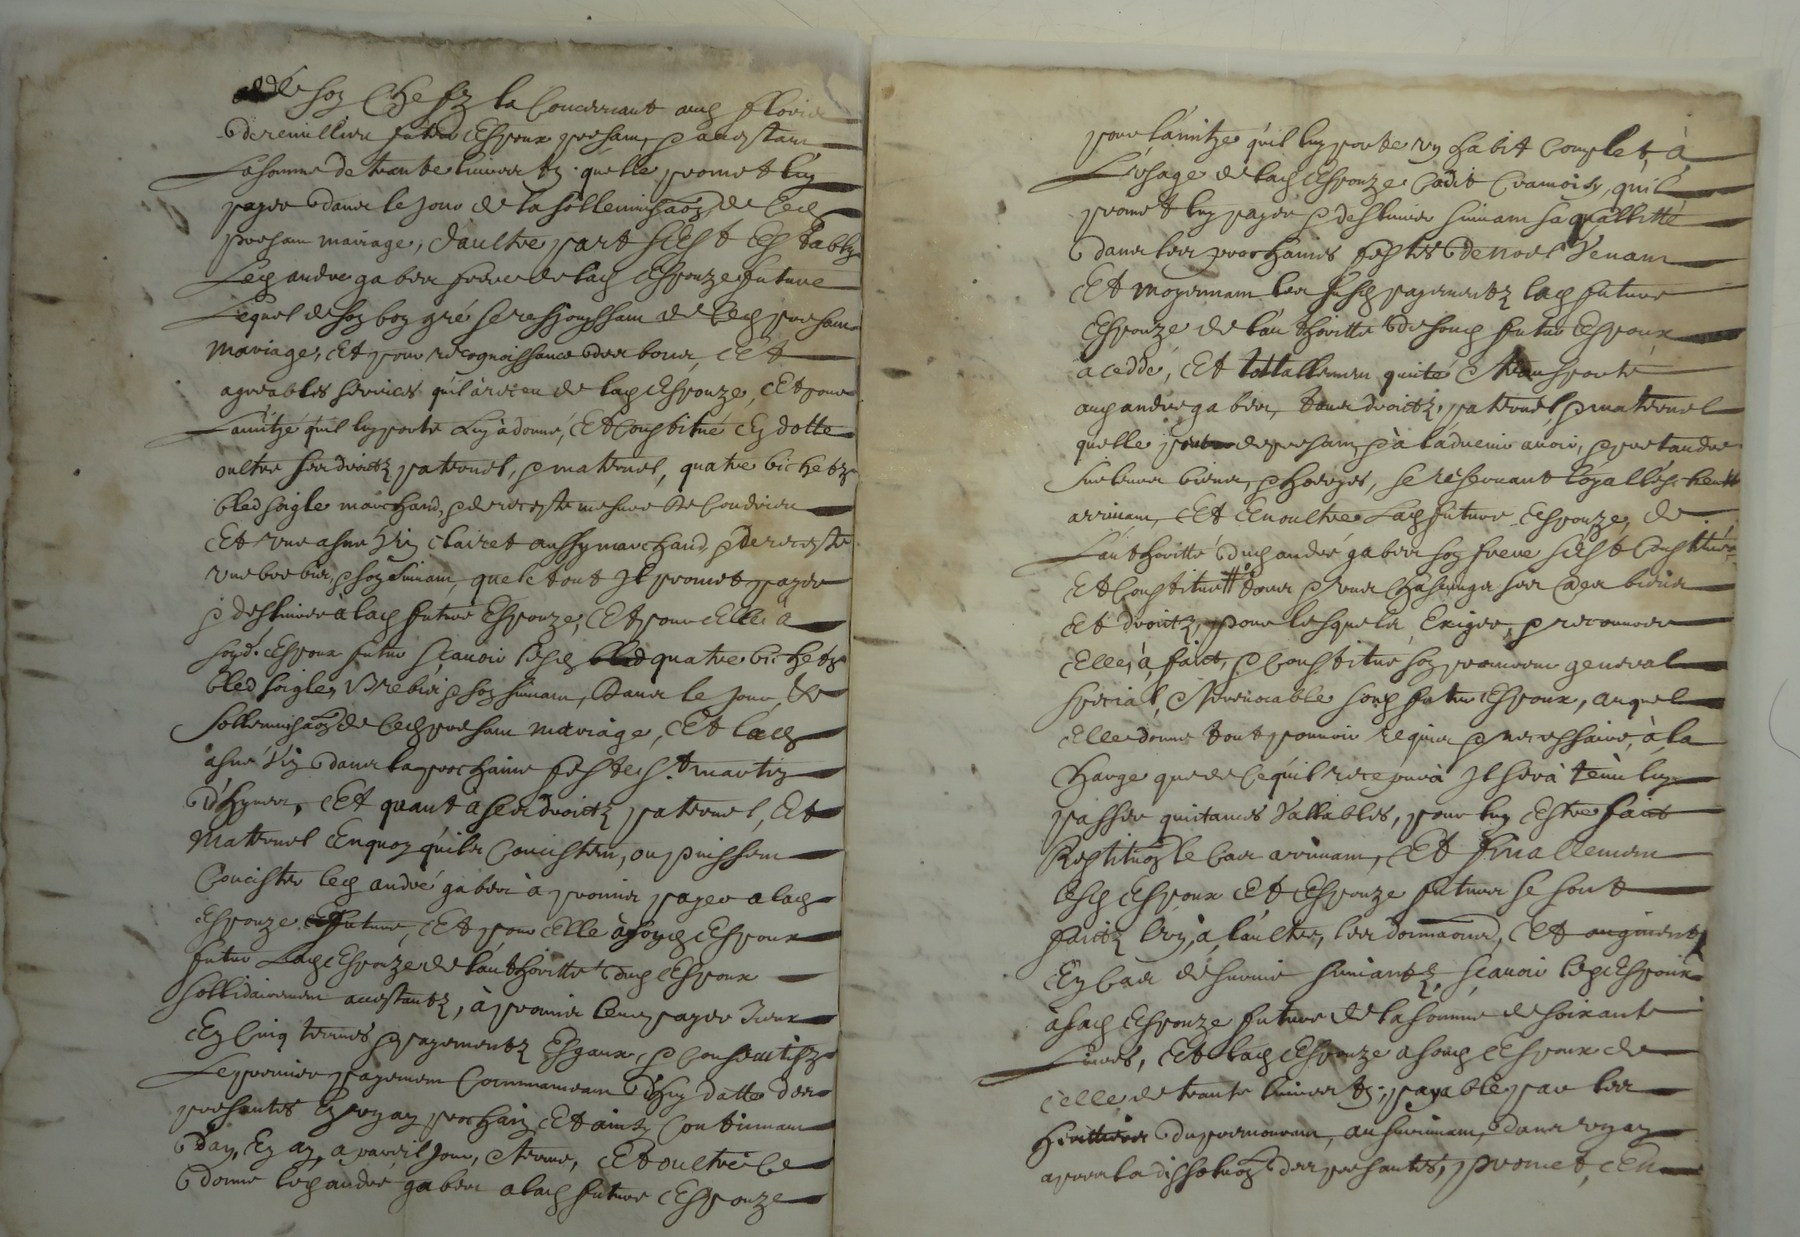 de son chefz la concernant aud florid
de remillieu futur Espoux presant, p acceptant
La somme de trante livres tz. quelle promet luy
payer dans le jour de la sollemnisaon de ced
presant mariage, daultre part sest estably
Led andre gabert frere de lad Espouze future
Lequel de son bon gré se resjouyssant de ced presant
mariage, Et pour recognoissance des bons, Et
agreables services quil à receu de lad Espouze, Et pour
Lamitye quil luy porte Luy à donné, Et Constitué En dotte
oultre ses droictz paternel, p maternel, quatre bichetz
bled soigle marchand, p de recepte mesure de Condrieu
Et une asnee vin clairet aussy marchand, p de recepte
une brebis, p son suivant, que le tout Il promet payer
p deslivrer à lad future Espouze, Et pour Elle à
sond. Espoux futur sçavoir lesd quatre bichetz
bled soigle, Brebis p son suivant, dans le jour, de
sollemnisaon de ced presant mariage, Et lad
asnée vin dans la prochaine feste st martin
d'hyver, Et quant à ses droictz paternel, Et
Maternel Enquoy quils concistent, ou puissent
Concister led andré gabert à promis payer a lad
Espouze future, Et pour Elle à sond Espoux
futur Lad Espouze de lauthoritte dud Espoux
sollidairement acceptantz, à promis leur payer Iceux
En cinq termes p payementz Esgaux, p consecutifz
Le premier payement commanceant d'huy datte des
presantes En ung an prochain, Et ainsy continuant
d'an, En an, a pareil jour, p terme, Et oultre ce
donne led andré gabert a lad future Espouze
pour lamitye quil luy porte un habit complet, à
L'usage de lad Espouze cadis cramoisy, quil
promet luy payer p deslivrer suivant sa quallitté
dans les prochaines festes de noel venant
Et moyennant les susd payementz lad future
Espouze de lauthoritte de soud futur Espoux
à ceddé, Et tottallement quité p transporté
aud andre gabert, tous droictz, paternel, p maternel
quelle peut de presant, p à l'advenir avoir, p pretandre
sur leurs biens, p hoiryes, se réservant loyalle Escheutte
arrivant, Et Enoultre Lad future Espouze, de
Lauthoritté dud andré gabert son frere sest constituée
Et Constitue tous p ung chascungs ses aultres biens
Et droictz, pour lesquels Exiger, p recouvrer
Elle, à faict, p constitué son procureur general
special, p Irrevocable soud futur Espoux, auquel
Elle donne tout pouvoir requis p necessaire, à la
charge que de ce quil recepvra Il sera tenu luy
passer quictances vallables, pour luy Estre faict
Restitution le cas arrivant, Et finallement
lesd Espoux Et Espouze futurs se sont
faictz l'un, à laultre, les donnaons, Et augment
En cas de survie suivantz, sçavoir led Espoux
à sad Espouze future de la somme de soixante
Livres, Et lad Espouze a soud Espoux de
celle de trante livres tz. payable par les
heritiers du premourant, au survivant, dans ung an
apres la dissolution des presantes, promet, En